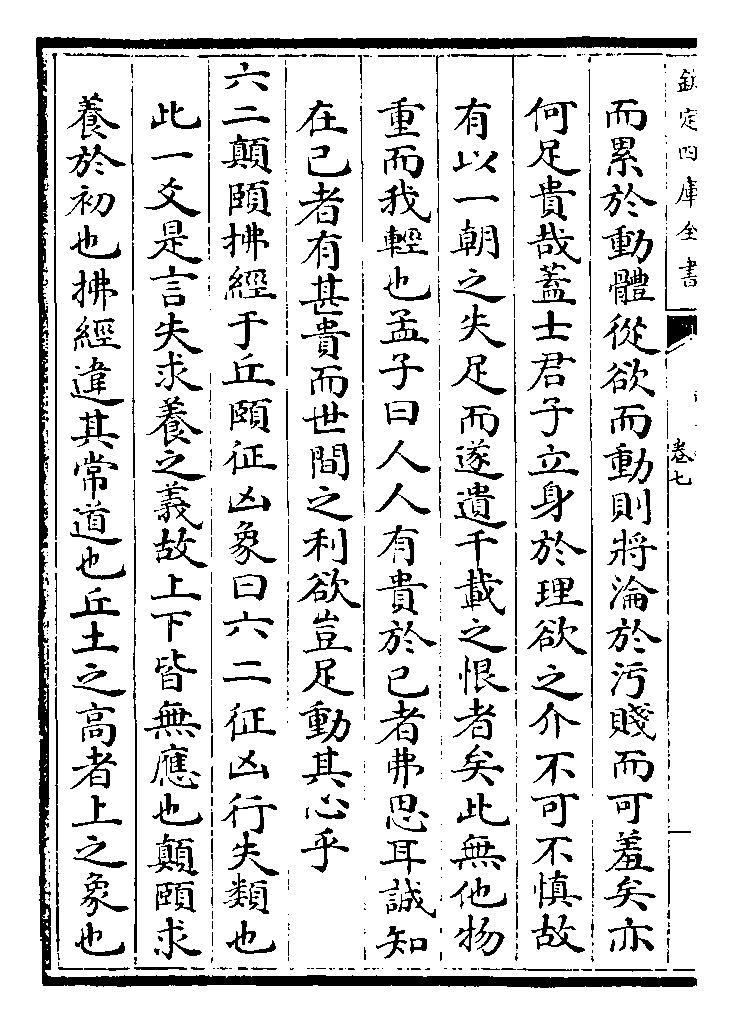 欽定四庫全書
卷七
而累於動體從欲而動則將淪於污賤而可羞矣亦
何足貴哉蓋士君子立身於理欲之介不可不慎故
有以一朝之失足而遂遺千載之恨者矣此無他物
重而我輕也孟子曰人人有貴於已者弗思耳誠知
在己者有甚貴而世間之利欲豈足動其心乎
六二顛頤拂經于丘頤征凶象曰六二征凶行失類也
此一爻是言失求養之義故上下皆無應也顛頤求
養於初也拂經違其常道也丘土之高者上之象也